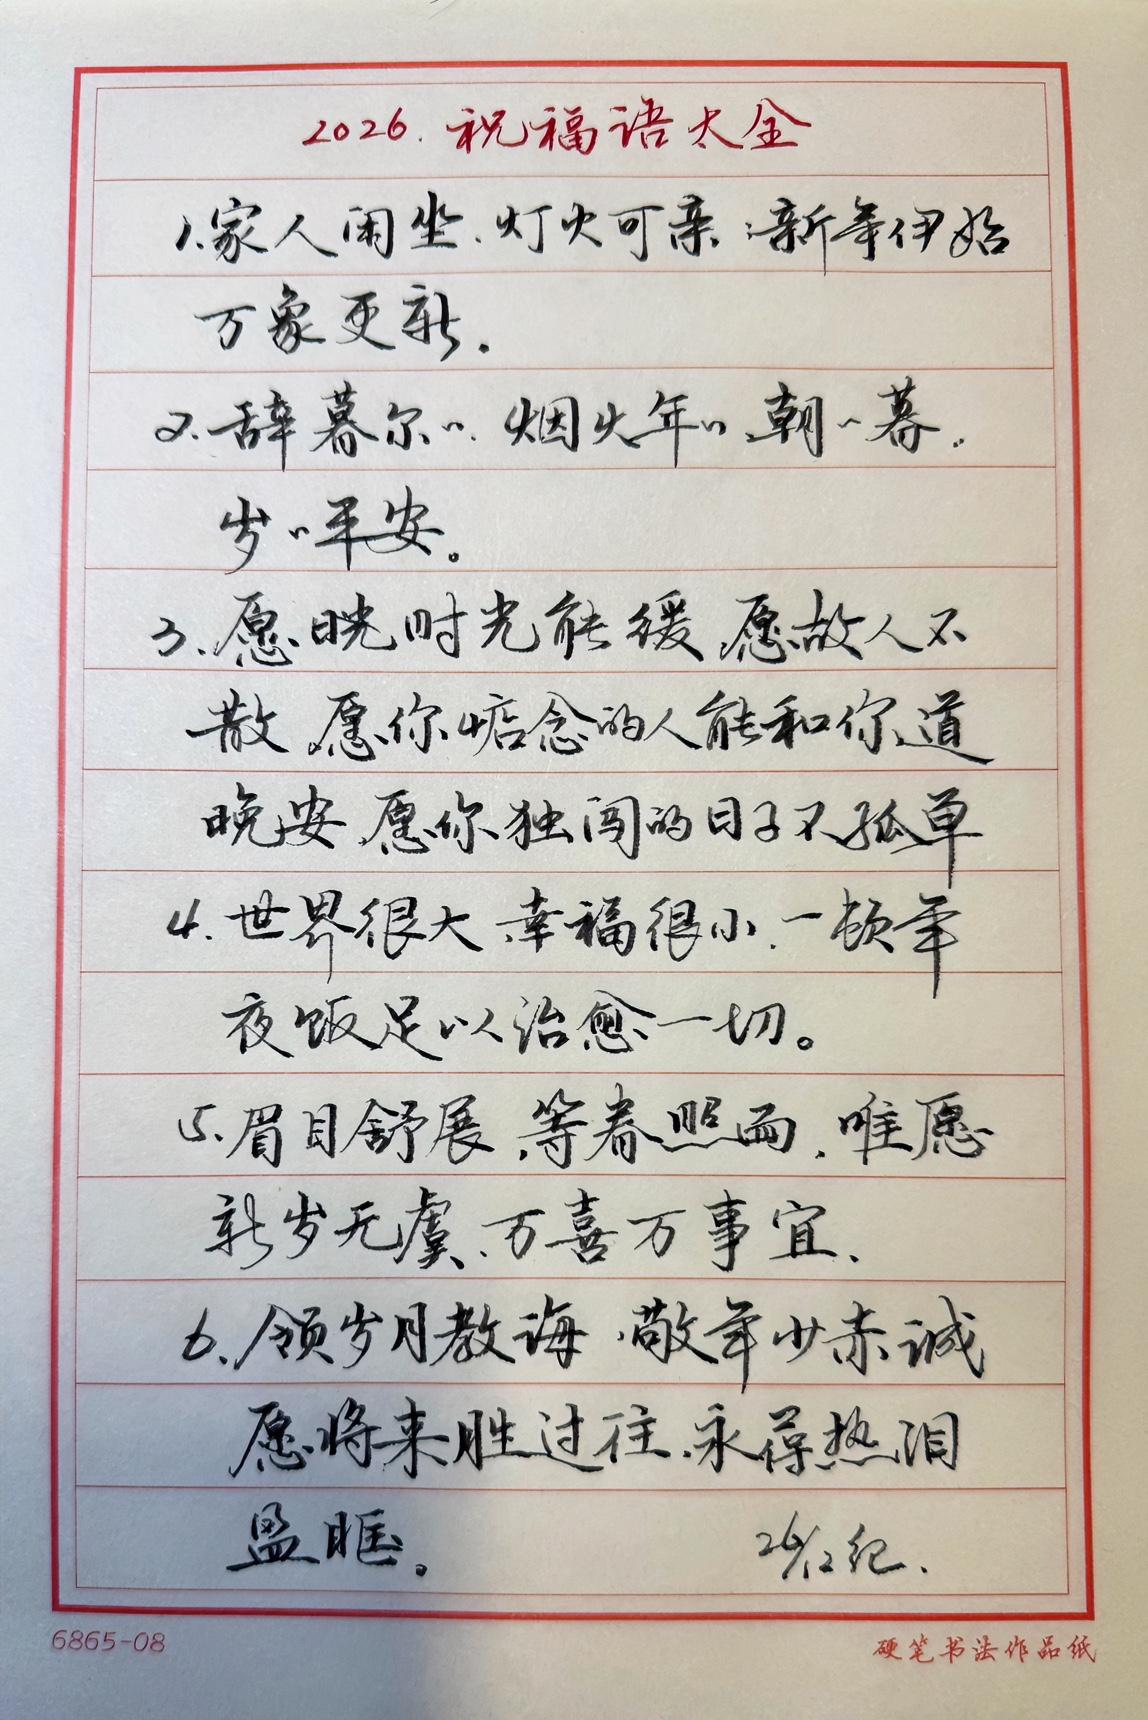 2026.祝福语大全
1.家人闲坐、灯火可亲、新年伊始
万象更新.
2.辞暮尔〃.烟火年〃、朝〃暮.
岁〃平安。
3.愿晄时光能缓、愿故人不
散、愿你惦念的人能和你道
晚安、愿你独闯的日子不孤单
4.世界很大、幸福很小、一顿年
夜饭足以治愈一切。
5.眉目舒展、等春照面、唯愿
新岁无虞、万喜万事宜、
6.领岁月教诲、敬年少赤诚
愿将来胜过往、永葆热泪
盈眶。 26/12纪.
6865-08 硬笔书法作品纸